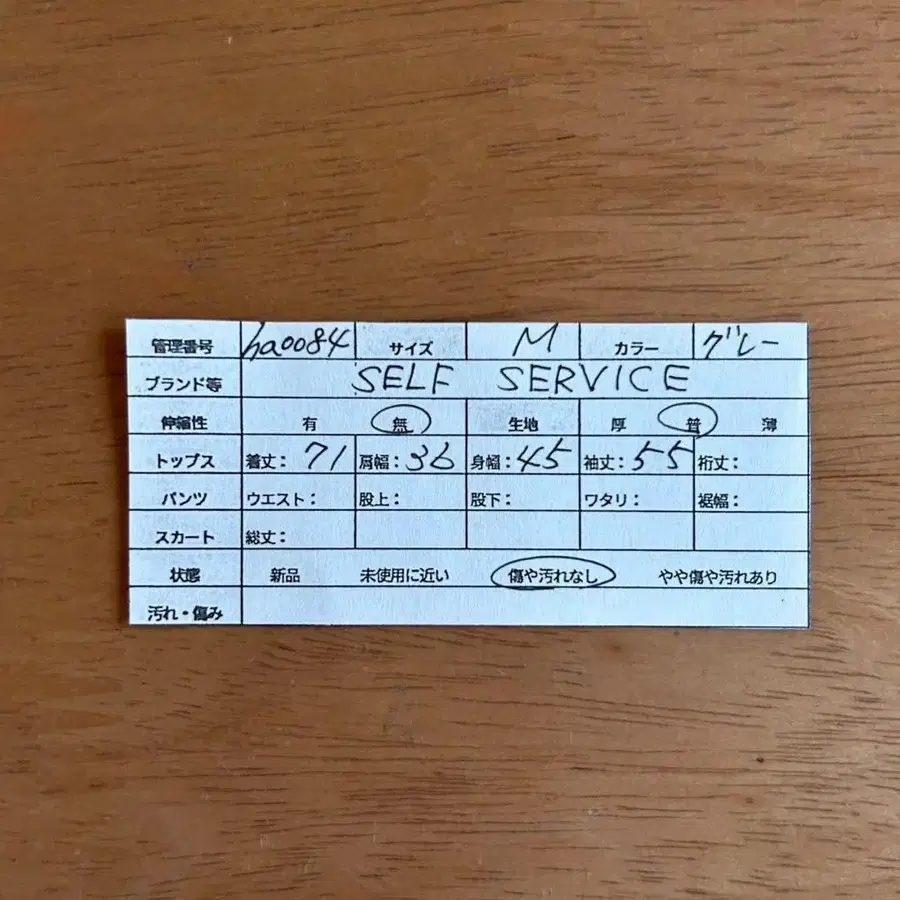 管理番号 ha0084 サイズ M カラー グレー
ブランド等 SELF SERVICE
伸縮性 有 無 生地 厚 普 薄
トップス 着丈: 71 肩幅: 36 身幅: 45 袖丈: 55 裄丈:
パンツ ウエスト: 股上: 股下: ワタリ: 裾幅:
スカート 総丈:
状態 新品 未使用に近い 傷や汚れなし やや傷や汚れあり
汚れ・傷み